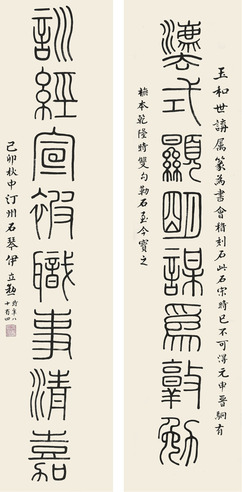 玉和世講属篆為書會稽刻石此石宋時已不可得元申屠駉有
灋式顯明謀爲敦勉
橅本乾隆時雙勾勒石至今寶之
訓經宣被職事清嘉
己卯秋中汀州石琴伊立勳
時年八
十有四